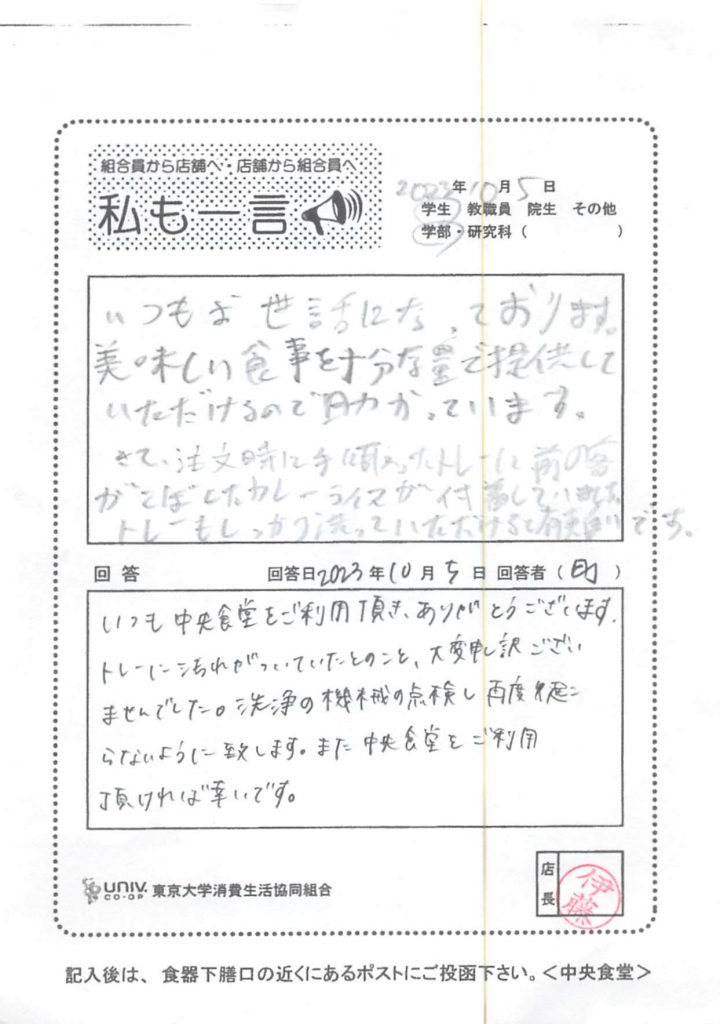 組合員から店舗へ・店舗から組合員へ
私も一言
2023年10月5日
学生 教職員 院生 その他
学部・研究科( )
いつもお世話になっております。
美味しい食事を十分な量で提供して
いただけるので助かっています。
さて、注文時に手に取ったトレーに前の客
がこぼしたカレーライスが付着していました。
トレーもしっかり洗っていただけると有難いです。
回答 回答日2023年10月5日 回答者( )
いつも中央食堂をご利用頂き、ありがとうございます。
トレーに汚れがついていたとのこと、大変申し訳ござい
ませんでした。洗浄の機械の点検し再度起こ
らないように致します。また中央食堂をご利用
頂ければ幸いです。
UNIV. CO-OP 東京大学消費生活協同組合
店長 伊藤
記入後は、食器下膳口の近くにあるポストにご投函下さい。<中央食堂>